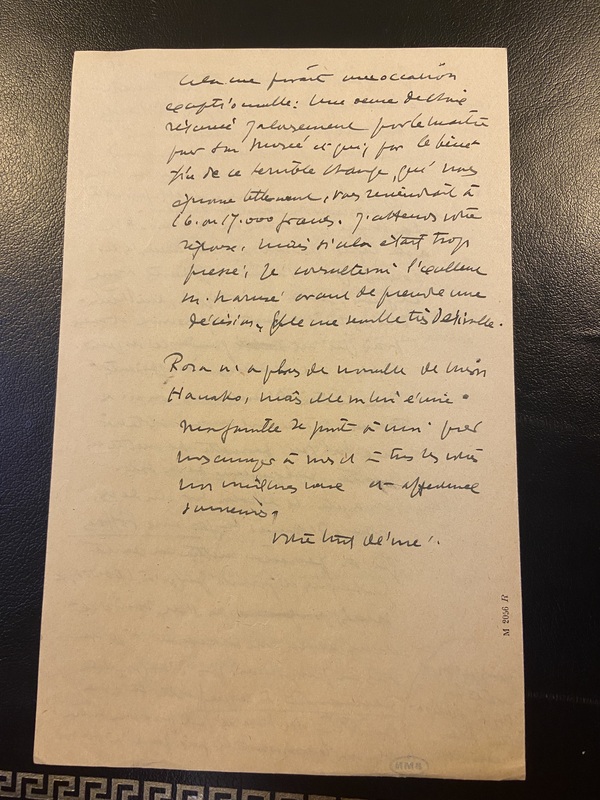 Cela me paraît une occasion
exceptionnelle: une oeuvre de choix
réservée jalousement par le maître
pour son musée et qui, par le béné-
fice de ce terrible change, qui nous
éprouve tellement, vous reviendrait à
16. ou 17.000 francs. J'attends votre
réponse, mais si cela était trop
pressé, je consulterai l'excellent
M. avant de prendre une
décision. Elle me semble très désirable.
Rosa n'a plus de nouvelle de
Hanako, mais elle m'en
Ma famille se joint à moi pour
vous envoyer à vous et à tous les vôtres
nos meilleurs voeux et affectueux
souvenirs,
Votre tout dévoué.
M 2056 R